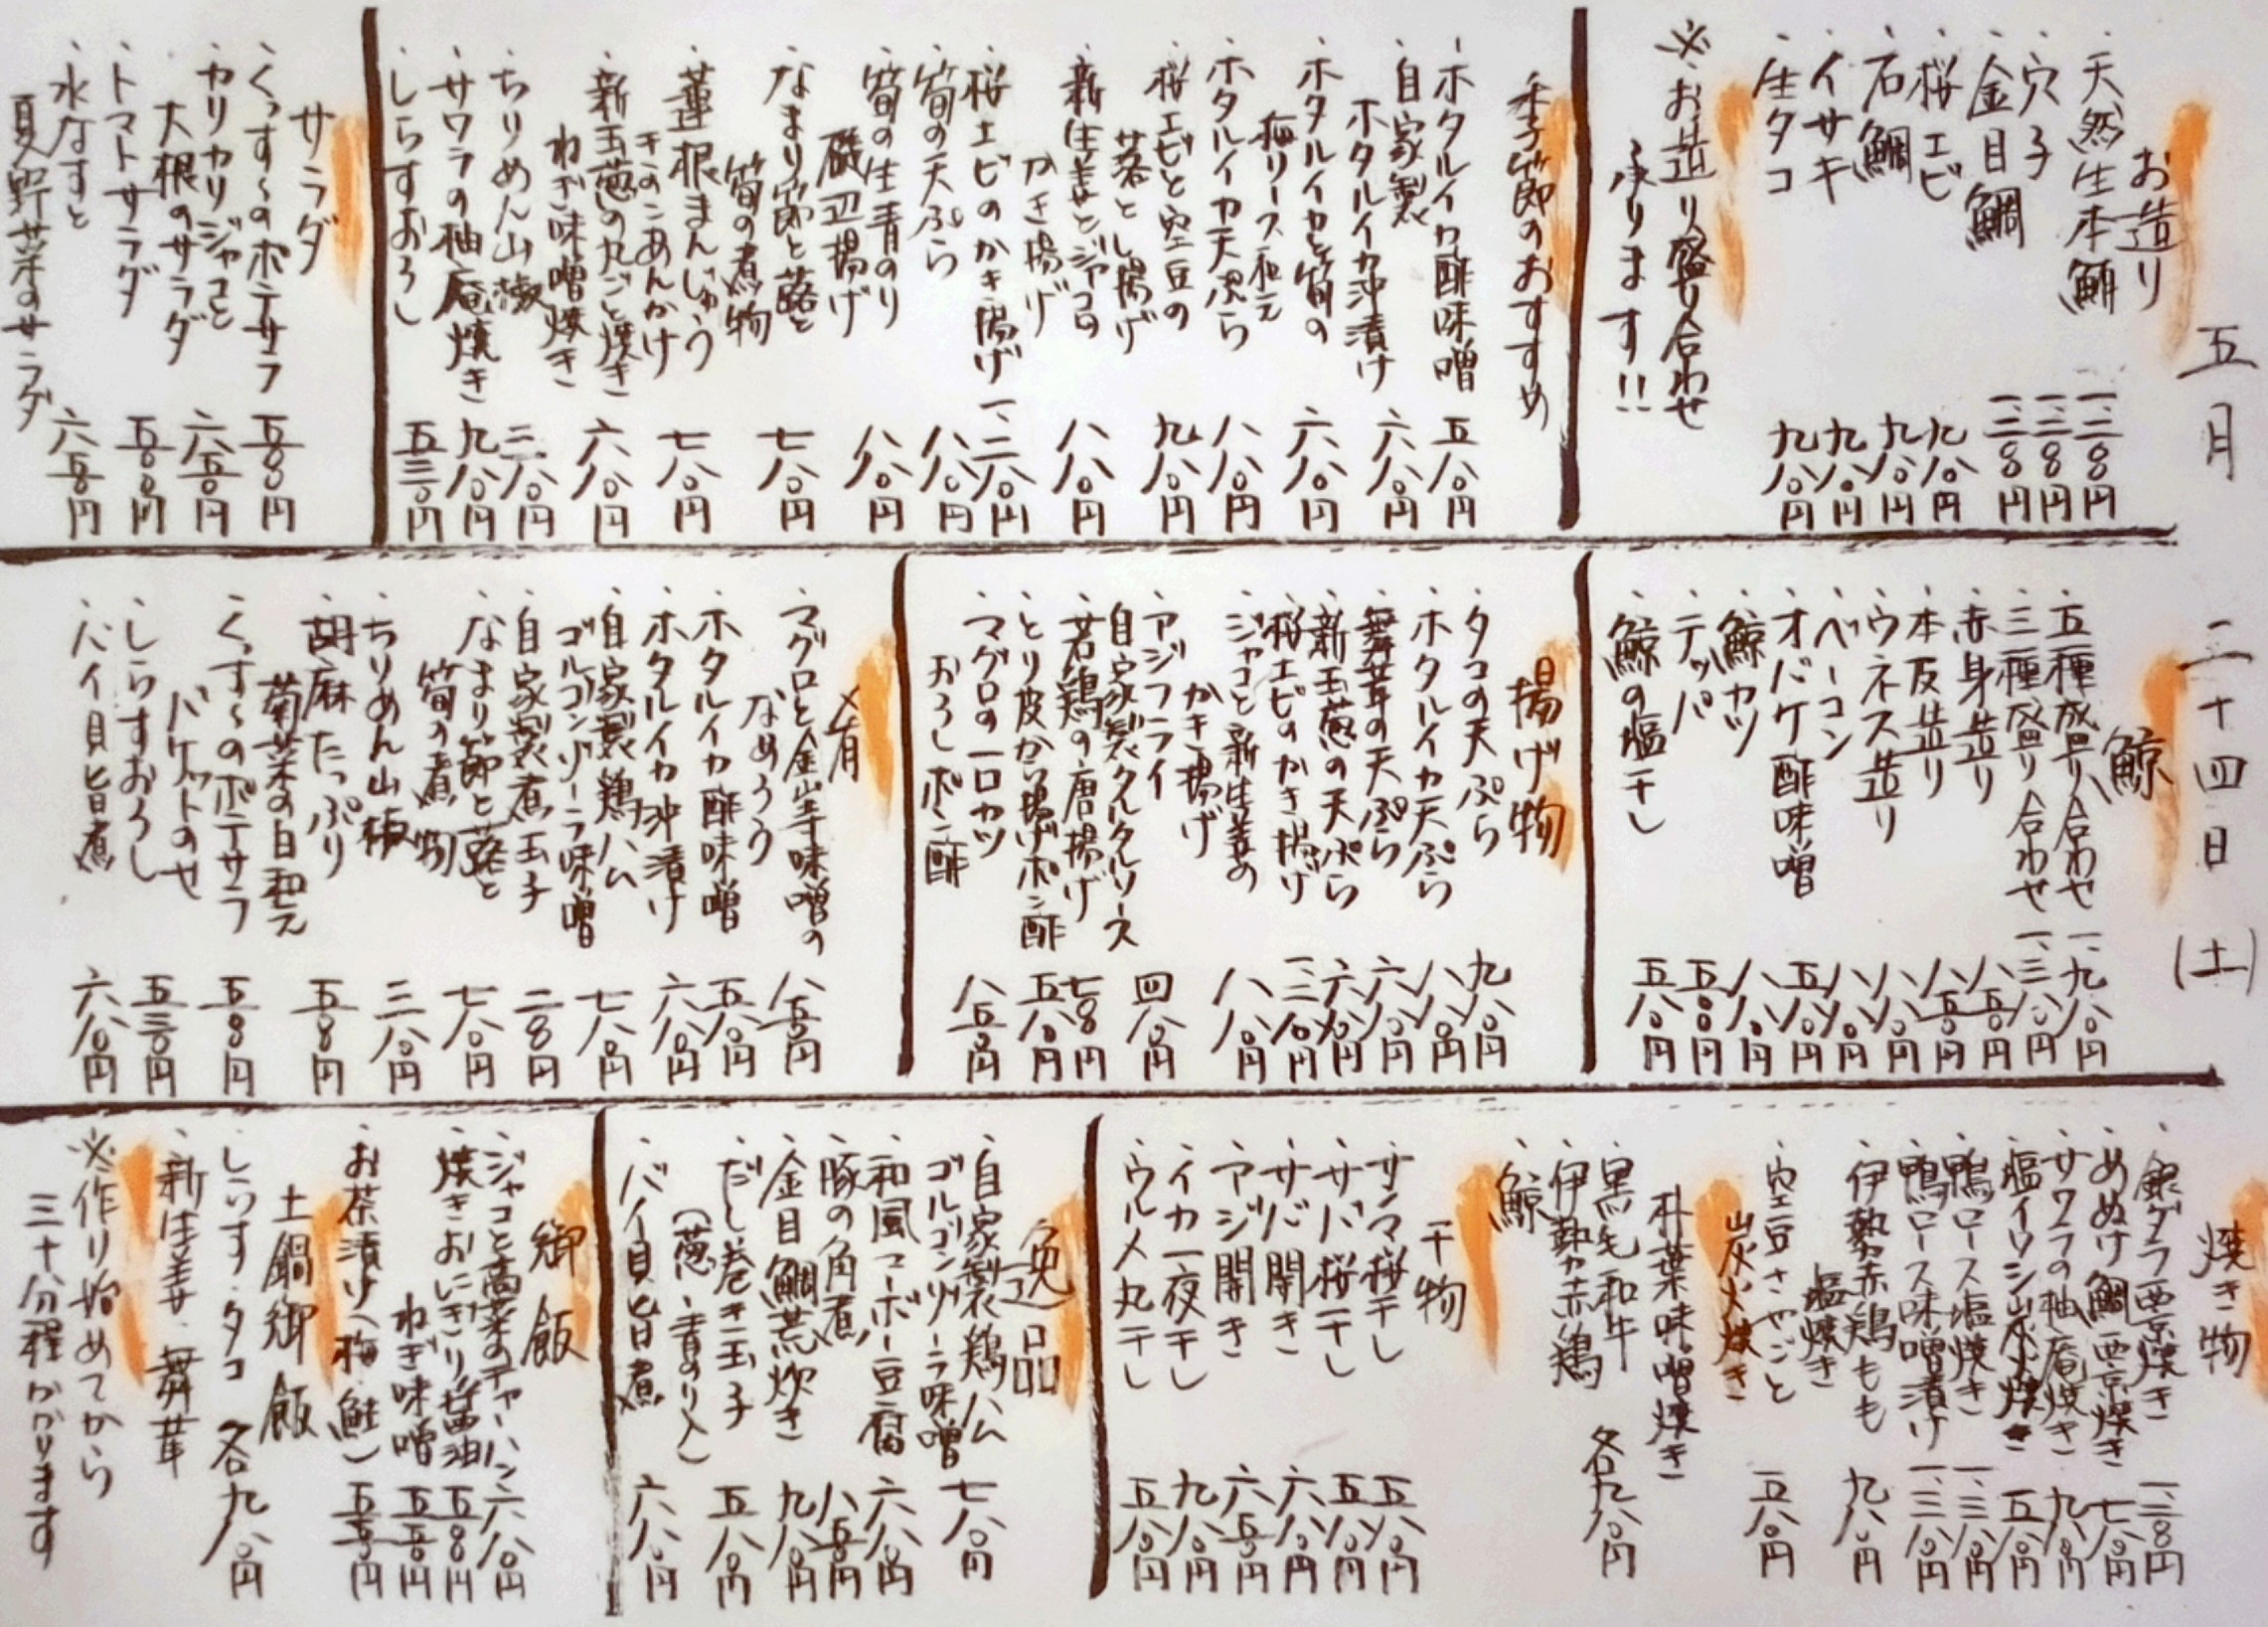 五月 二十四日(土)
お造り
・天然生本鮪 一、二八〇円
・穴子 一、二八〇円
・金目鯛 一、二八〇円
・桜エビ 九八〇円
・石鯛 九八〇円
・イサキ 九八〇円
・生タコ 九八〇円
※お造り盛り合わせ
承ります!!
季節のおすすめ
・ホタルイカ酢味噌 五八〇円
・自家製
ホタルイカ沖漬け 六八〇円
・ホタルイカと筍の
梅リース和え 六八〇円
・ホタルイカ天ぷら 八八〇円
・桜エビと空豆の
落とし揚げ 九八〇円
・新生姜とジャコの
かき揚げ 八八〇円
・桜エビのかき揚げ 一、二八〇円
・筍の天ぷら 八八〇円
・筍の生青のり
磯辺揚げ 八八〇円
・なまり節と蕗と
筍の煮物 七八〇円
・蓮根まんじゅう
きのこあんかけ 七八〇円
・新玉葱の丸ごと焼き
ねぎ味噌焼き 六八〇円
・ちりめん山椒 三八〇円
・サワラの柚庵焼き 九八〇円
・しらすおろし 五三〇円
サラダ
・くっす〜のポテサラ 五八〇円
・カリカリジャコと
大根のサラダ 六五〇円
・トマトサラダ 五八〇円
・水なすと
夏野菜のサラダ 六五〇円
鯨
・五種盛り合わせ 一、九八〇円
・三種盛り合わせ 一、三八〇円
・赤身造り 八五〇円
・本皮造り 八五〇円
・ウネス造り 八八〇円
・ベーコン 八八〇円
・オバケ酢味噌 五八〇円
・鯨カツ 八八〇円
・テッパ 五五〇円
・鯨の塩干し 五八〇円
揚げ物
・タコの天ぷら 九八〇円
・ホタルイカ天ぷら 八八〇円
・舞茸の天ぷら 六八〇円
・新玉葱の天ぷら 六八〇円
・桜エビのかき揚げ 一、二八〇円
・ジャコと新生姜の
かき揚げ 八八〇円
・アジフライ
自家製タルタルソース 四八〇円
・若鶏の唐揚げ 七八〇円
・とり皮から揚げポン酢 五八〇円
・マグロの一口カツ
おろしポン酢 八五〇円
肴
・マグロと金山寺味噌の
なめろう 八五〇円
・ホタルイカ酢味噌 五八〇円
・ホタルイカ沖漬け 六八〇円
・自家製鶏ハム
ゴルゴンゾーラ味噌 七八〇円
・自家製煮玉子 二八〇円
・なまり節と蕗と
筍の煮物 七八〇円
・ちりめん山椒 三八〇円
・胡麻たっぷり
菊菜の白和え 五八〇円
・くっす〜のポテサラ
バケットのせ 五八〇円
・しらすおろし 五三〇円
・バイ貝旨煮 六八〇円
焼き物
・銀ダラ西京焼き 一、三八〇円
・めぬけ鯛西京焼き 七八〇円
・サワラの柚庵焼き 九八〇円
・塩イワシ炭火焼き 五八〇円
・鴨ロース塩焼き 一、三八〇円
・鴨ロース味噌漬け 一、三八〇円
・伊勢赤鶏もも
塩焼き 九八〇円
・空豆さやごと
炭火焼き 五八〇円
朴葉味噌焼き
・黒毛和牛
・伊勢赤鶏
・鯨 各九八〇円
干物
・サンマ桜干し 五八〇円
・サバ桜干し 五八〇円
・サバ開き 六八〇円
・アジ開き 六五〇円
・イカ一夜干し 九八〇円
・ウルメ丸干し 五八〇円
逸品
・自家製鶏ハム
ゴルゴンゾーラ味噌 七八〇円
・和風マーボー豆腐 六八〇円
・豚の角煮 八五〇円
・金目鯛荒炊き 九八〇円
・だし巻き玉子
(葱、青のり入) 五八〇円
・バイ貝旨煮 六八〇円
御飯
・ジャコと高菜のチャーハン 六八〇円
・焼きおにぎり醤油 五八〇円
ねぎ味噌 五五〇円
・お茶漬け(梅、鮭) 五五〇円
土鍋御飯
・しらす・タコ 各九八〇円
・新生姜・舞茸
※作り始めてから
三十分程かかります